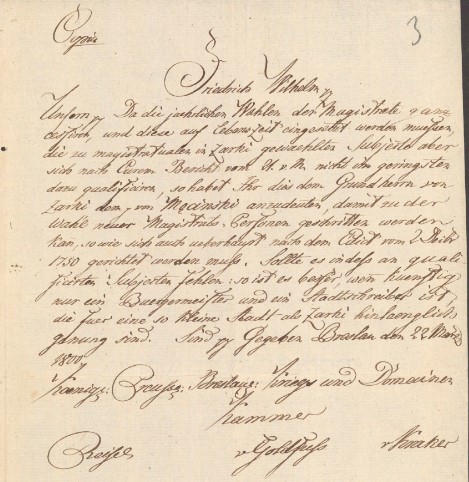 Copia
3
Friedrich Wilhelm
Unsern Da die jaehrlichen Wahlen der Magistrate ganz
cessiren, und diese auf Lebenszeit eingesetzt werden muessen,
die zu magistratualen in Zarki gewaehlten Subjecte aber
sich nach Eurem Bericht vom v. M. nicht im geringsten
dazu qualificiren, so habet Ihr dies dem Grundherrn von
Zarki dem von Męcinski anzudeuten, damit zu der
Wahl neuer Magistrats Personen geschritten werden
kan, so wie sich auch ueberhaupt nach dem Edict vom
1750 gerichtet werden muss. Sollte es indess an quali
ficirten Subjecten fehlen: so ist es besser, wen kuenftig
nur ein Buergermeister und ein Stadtschreiber ist,
die fuer eine so kleine Stadt als Zarki hinlaenglich
genung sind. Sind Gegeben Breslau den 22 Martz
1800
Koenigl: Preuss: Breslau: Kriegs und Domainen
Kammer
v Goldfuss